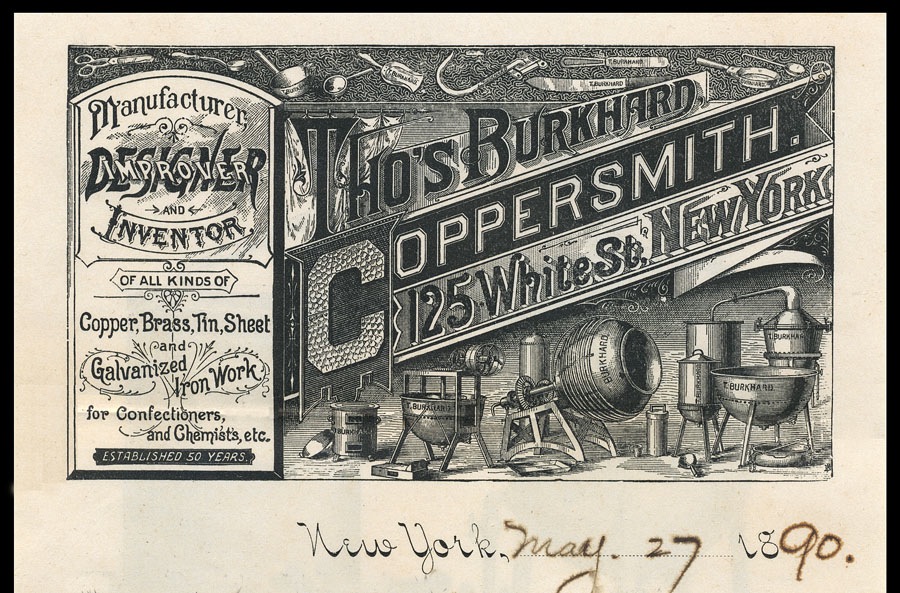 Manufacturer,
DESIGNER
IMPROVER
AND
INVENTOR
OF ALL KINDS OF
Copper, Brass, Tin, Sheet
and
Galvanized
Iron Work
for Confectioners,
and Chemists, etc.
ESTABLISHED 50 YEARS.
THO'S BURKHARD,
COPPERSMITH.
125 White St., NEW YORK
T. BURKHARD
T. BURKHARD
T. BURKHARD
BURKHARD
T. BURKHARD
T. BURKHARD
New York, May. 27 1890.